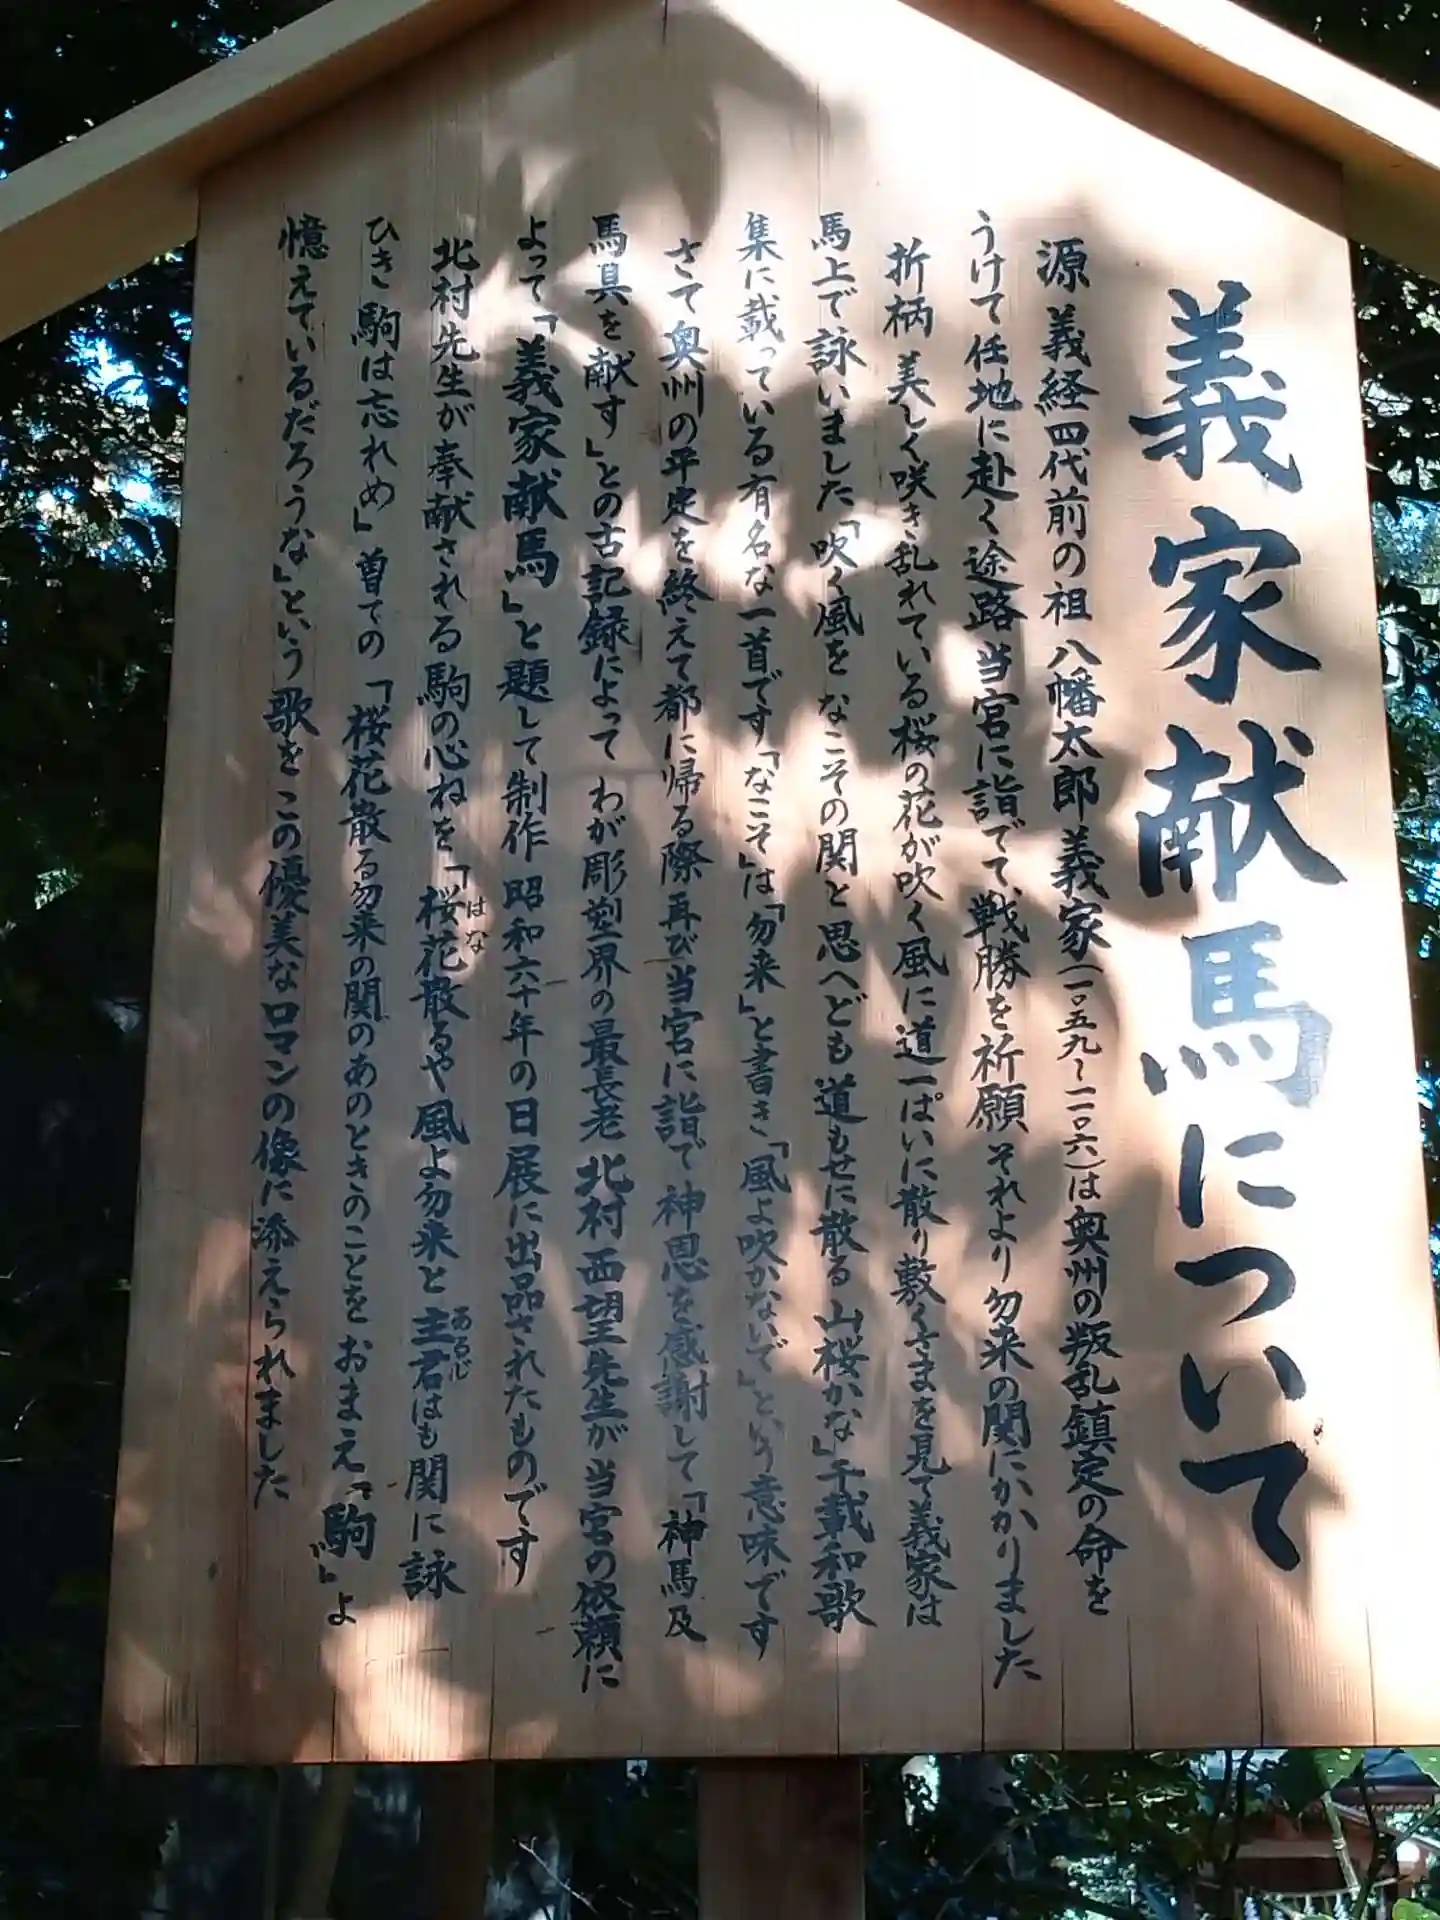 義家献馬について
源 義経四代前の祖 八幡太郎義家(一〇五九〜一一〇六)は奥州の叛乱鎮定の命を
うけて任地に赴く途路 当宮に詣でて、戦勝を祈願 それより勿来の関にかかりました
折柄 美しく咲き乱れている桜の花が吹く風に道一ぱいに散り敷くさまを見て義家は
馬上で詠いました「吹く風を なこその関と思へども 道もせに散る 山桜かな」千載和歌
集に載っている有名な一首です「なこそ」は「勿来」と書き「風よ吹かないで」という意味です
さて奥州の平定を終えて都に帰る際 再び当宮に詣で 神恩を感謝して「神馬及
馬具を献す」との古記録によって わが彫塑界の最長老 北村西望先生が当宮の依頼に
よって「義家献馬」と題して制作 昭和六十年の日展に出品されたものです
北村先生が奉献される駒の心ねを「桜花散るや風よ勿来と 主君はも関に詠
はな
あるじ
ひき 駒は忘れめ」曽ての「桜花散る勿来の関のあのときのことを おまえ〝駒〟よ
憶えているだろうな」という歌を この優美なロマンの像に添えられました